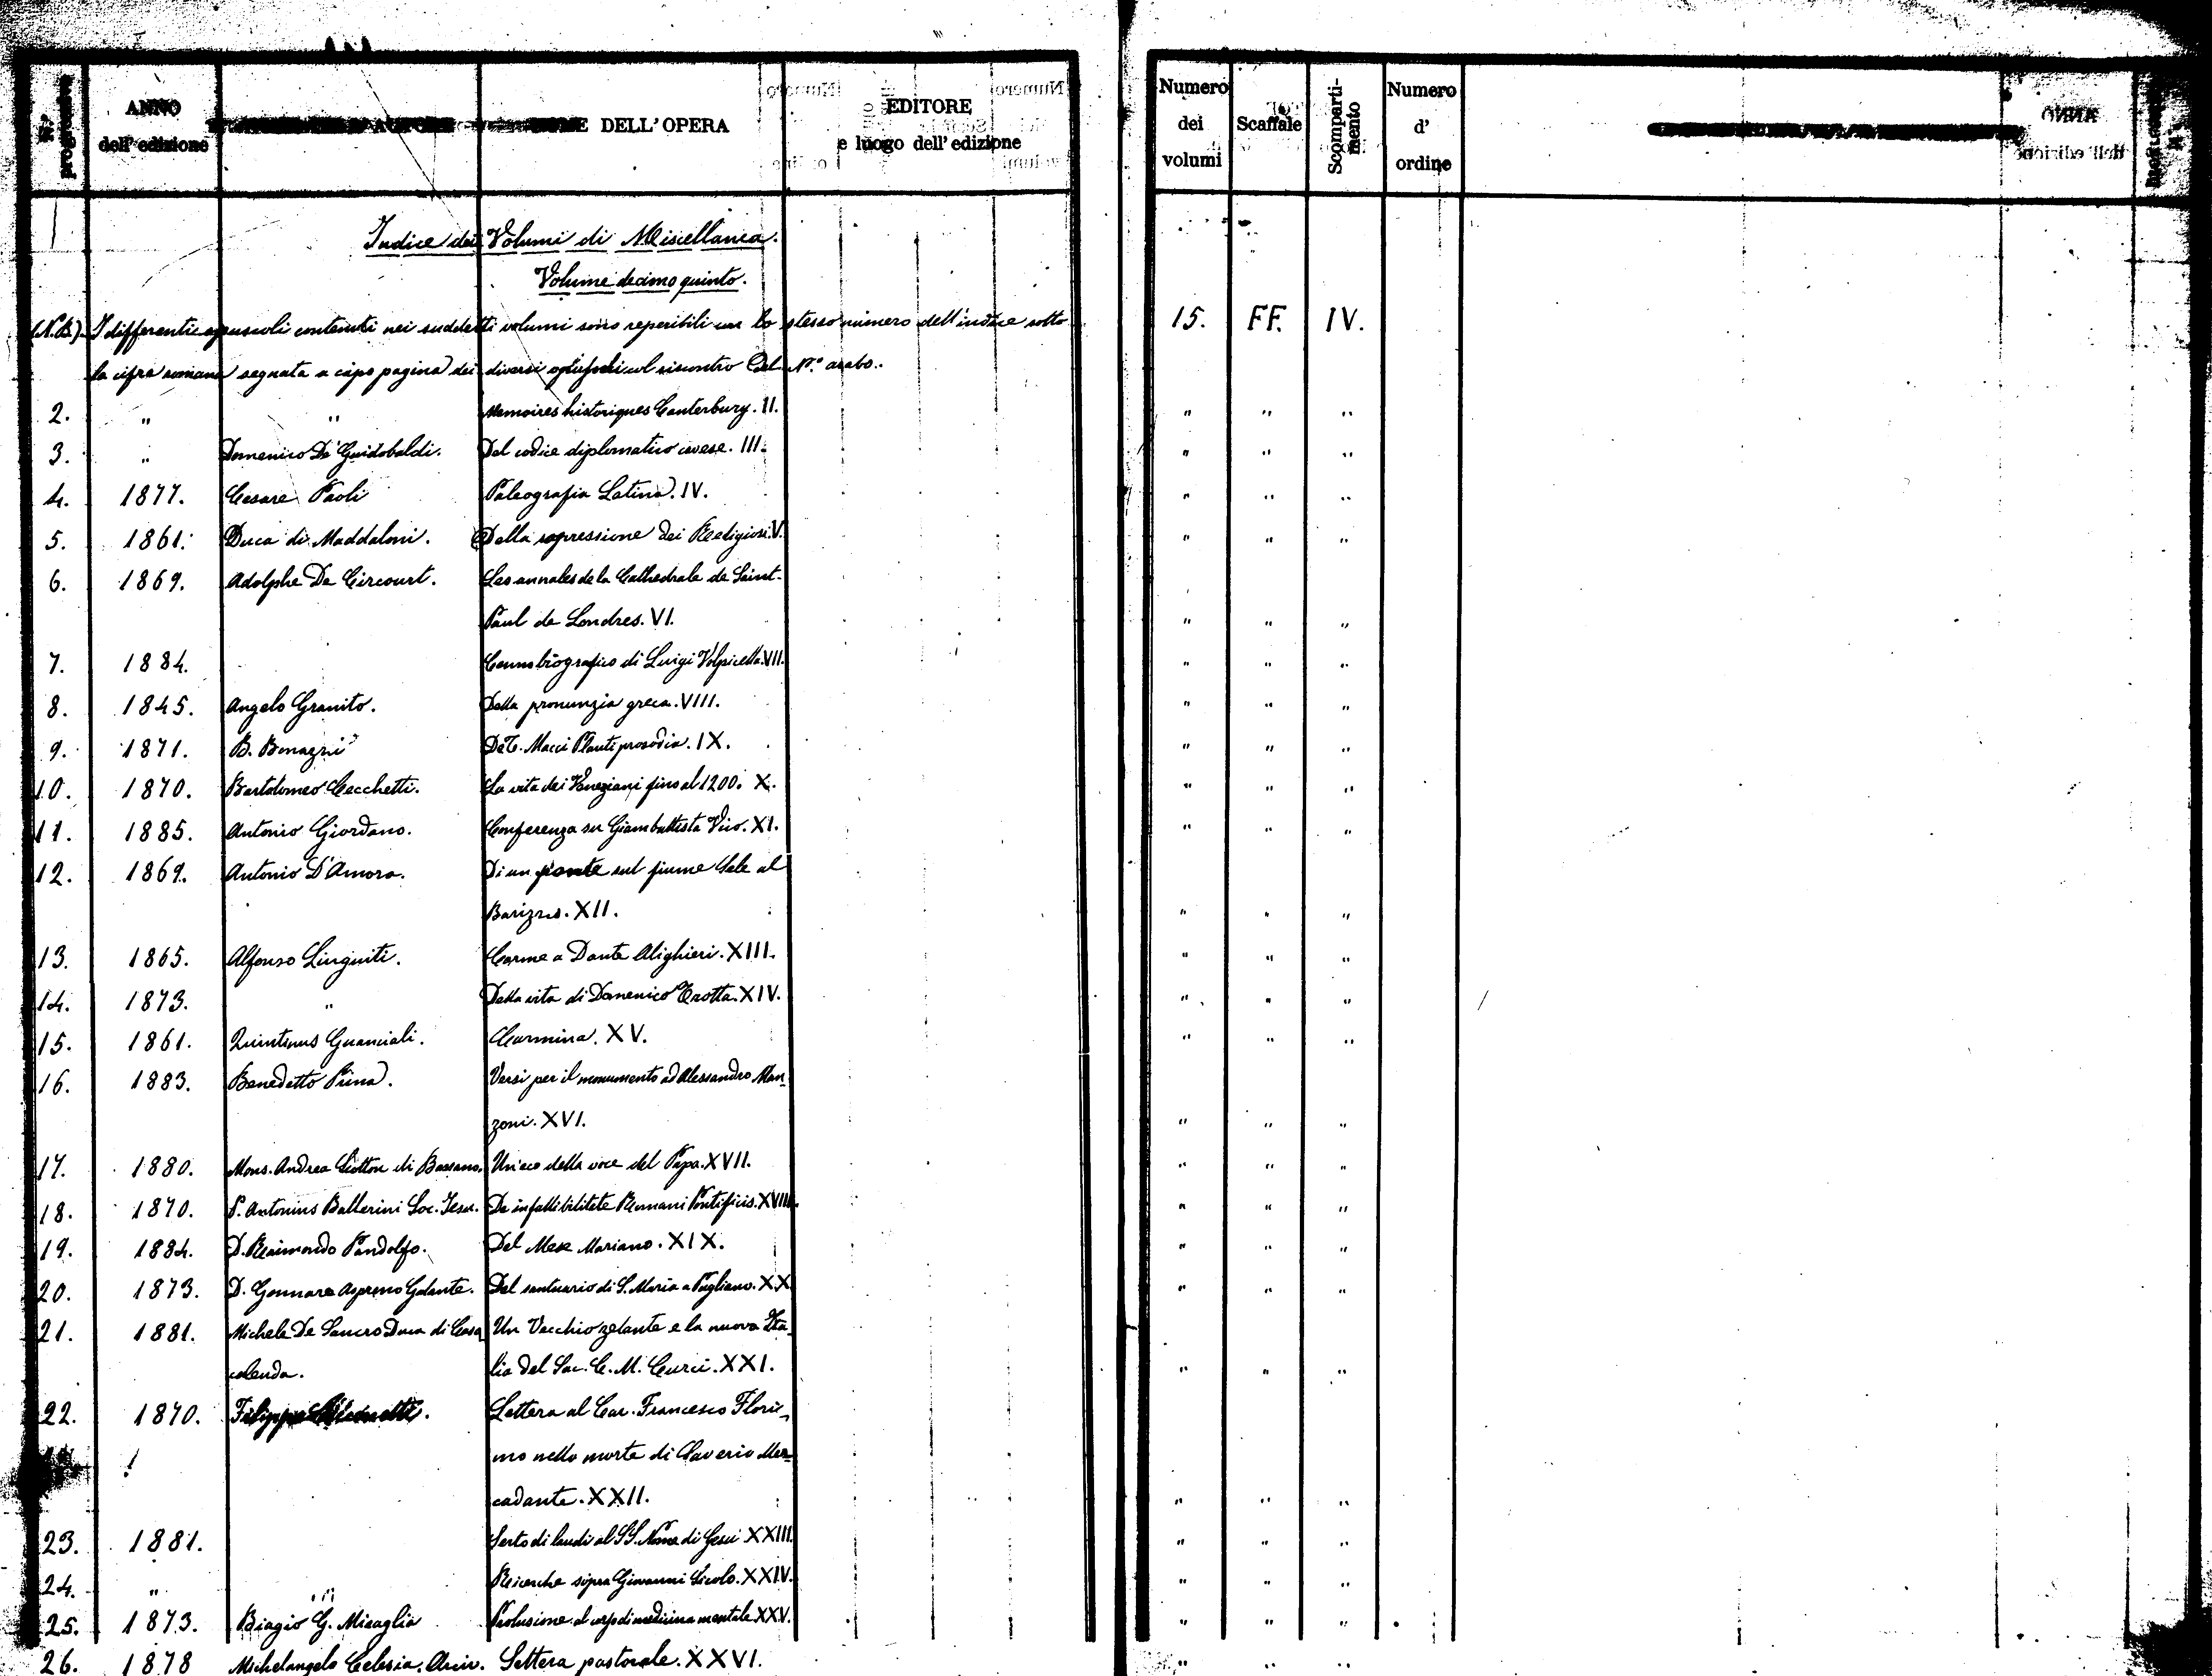 N.° progressivo ANNO dell'edizione DELL'OPERA EDITORE e luogo dell'edizione Numero dei volumi Scaffale Scomparti-mento Numero d' ordine
Indice dei Volumi di Miscellanea.
Volume decimo quinto.
(N.B.) I differenti opuscoli contenuti nei suddetti volumi sono reperibili con lo stesso numero dell'indice sotto 15. FF. IV.
la cifra romana segnata a capo pagina dei diversi opuscoli col riscontro del N.° arabo.
2. " " Memoires historiques Canterbury. II. " " "
3. " Domenico De Guidobaldi. Del codice diplomatico cavese. III. " " "
4. 1877. Cesare Paoli Paleografia Latina. IV. " " "
5. 1861. Duca di Maddaloni. Della sopressione dei Religiosi. V. " " "
6. 1869. Adolphe De Circourt. Les annales de la Cathedrale de Saint-
Paul de Londres. VI. " " "
7. 1884. Cenno biografico di Luigi Volpicella. VII. " " "
8. 1845. Angelo Granito. Della pronunzia greca. VIII. " " "
9. 1871. B. De T. Macci Plauti prosodia. IX. " " "
10. 1870. Bartolomeo Cecchetti. La vita dei Veneziani fino al 1200. X. " " "
11. 1885. Antonio Giordano. Conferenza su Giambattista Vico. XI. " " "
12. 1869. Antonio D'Amora. Di un ponte sul fiume Sele al
Barizzo. XII. " " "
13. 1865. Alfonso Linguiti. Carme a Dante Alighieri. XIII. " " "
14. 1873. " Della vita di Domenico Trotta. XIV. " " "
15. 1861. Quintinus Guanciali. Carmina. XV. " " "
16. 1883. Benedetto Pina. Versi per il monumento ad Alessandro Man-
zoni. XVI. " " "
17. 1880. Mons. Andrea Scotton di Bassano. Un'eco della voce del Papa. XVII. " " "
18. 1870. P. Antonius Ballerini Soc. Jesu. De infallibilitate Romani Pontificis. XVIII. " " "
19. 1884. D. Raimondo Pandolfo. Del Mese Mariano. XIX. " " "
20. 1873. D. Gennaro Aspreno Galante. Del santuario di S. Maria a Pugliano. XX. " " "
21. 1881. Michele De Sangro Duca di Casa Un Vecchio zelante e la nuova Ita-
calenda. lia del Sac. C. M. Curci. XXI. " " "
22. 1870. Filippo Lettera al Cav. Francesco Flori-
mo nella morte di Saverio Mer-
cadante. XXII. " " "
23. 1881. Serto di laudi al SS. Nome di Gesù XXIII. " " "
24. " " Ricerche sopra Giovanni Siculo. XXIV. " " "
25. 1873. Biagio G. Miraglia Prolusione al corso di medicina mentale XXV. " " "
26. 1878 Michelangelo Celesia, Arciv. Lettera pastorale. XXVI. " " "